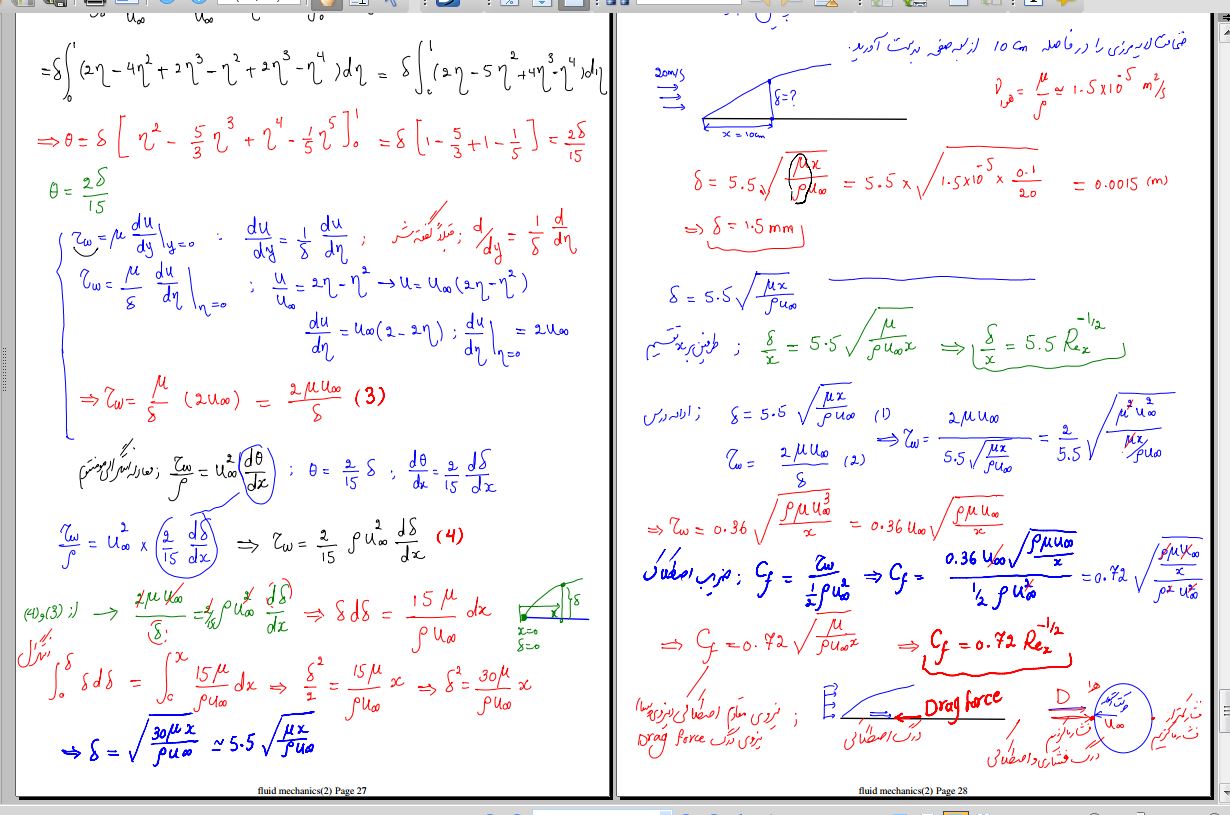 =δ∫₀¹ (2η − 4η² + 2η³ − η² + 2η³ − η⁴) dη = δ∫₀¹ (2η − 5η² + 4η³ − η⁴) dη
⇒ θ = δ [η² − 5/3 η³ + η⁴ − 1/5 η⁵]₀¹ = δ [1 − 5/3 + 1 − 1/5] = 2δ/15
θ = 2δ/15
τw = μ du/dy|y=0 ; du/dy = 1/δ du/dη ; قبلاً گفته شد ; d/dy = 1/δ d/dη
τw = μ/δ du/dη|η=0 ; u/u∞ = 2η − η² → u = u∞(2η − η²)
du/dη = u∞(2 − 2η) ; du/dη|η=0 = 2u∞
⇒ τw = μ/δ (2u∞) = 2μu∞/δ (3)
; τw/ρ = u∞² dθ/dx ; θ = 2/15 δ ; dθ/dx = 2/15 dδ/dx
τw/ρ = u∞² × 2/15 dδ/dx ⇒ τw = 2/15 ρu∞² dδ/dx (4)
(3) و (4) از ; → 2μu∞/δ = 2/15 ρu∞² dδ/dx ⇒ δdδ = 15μ/ρu∞ dx
x δ
x=0
δ=0
انتگرال
∫₀^δ δdδ = ∫₀^x 15μ/ρu∞ dx ⇒ δ²/2 = 15μ/ρu∞ x ⇒ δ² = 30μ/ρu∞ x
⇒ δ = √(30μx/ρu∞) ≃ 5.5 √(μx/ρu∞)
fluid mechanics(2) Page 27
ضخامت لایه مرزی را در فاصله 10 cm از لبه صفحه بدست آورید.
20m/s
δ=?
x = 10cm
ν هوا = μ/ρ ≃ 1.5×10⁻⁵ m²/s
δ = 5.5 √(μx/ρu∞) = 5.5 × √(1.5×10⁻⁵ × 0.1/20) = 0.0015 (m)
⇒ δ = 1.5 mm
δ = 5.5 √(μx/ρu∞)
طرفین بر x تقسیم ; δ/x = 5.5 √(μ/ρu∞x) ⇒ δ/x = 5.5 Reₓ^(-1/2)
ادامه درس ; δ = 5.5 √(μx/ρu∞) (1)
τw = 2μu∞/δ (2)
⇒ τw = 2μu∞ / 5.5√(μx/ρu∞) = 2/5.5 √(μ²u∞² / (μx/ρu∞))
⇒ τw = 0.36 √(ρμu∞³/x) = 0.36 u∞ √(ρμu∞/x)
ضریب اصطکاک ; Cf = τw / ½ρu∞² ⇒ Cf = 0.36 u∞ √(ρμu∞/x) / ½ρu∞² = 0.72 √((ρμu∞/x) / ρ²u∞²)
⇒ Cf = 0.72 √(μ/ρu∞x) ⇒ Cf = 0.72 Reₓ^(-1/2)
نیروی مقاوم اصطکاکی
نیروی درگ Drag force ;
Drag force
درگ اصطکاکی
D
هوا
u∞
درگ فشاری و اصطکاکی
fluid mechanics(2) Page 28